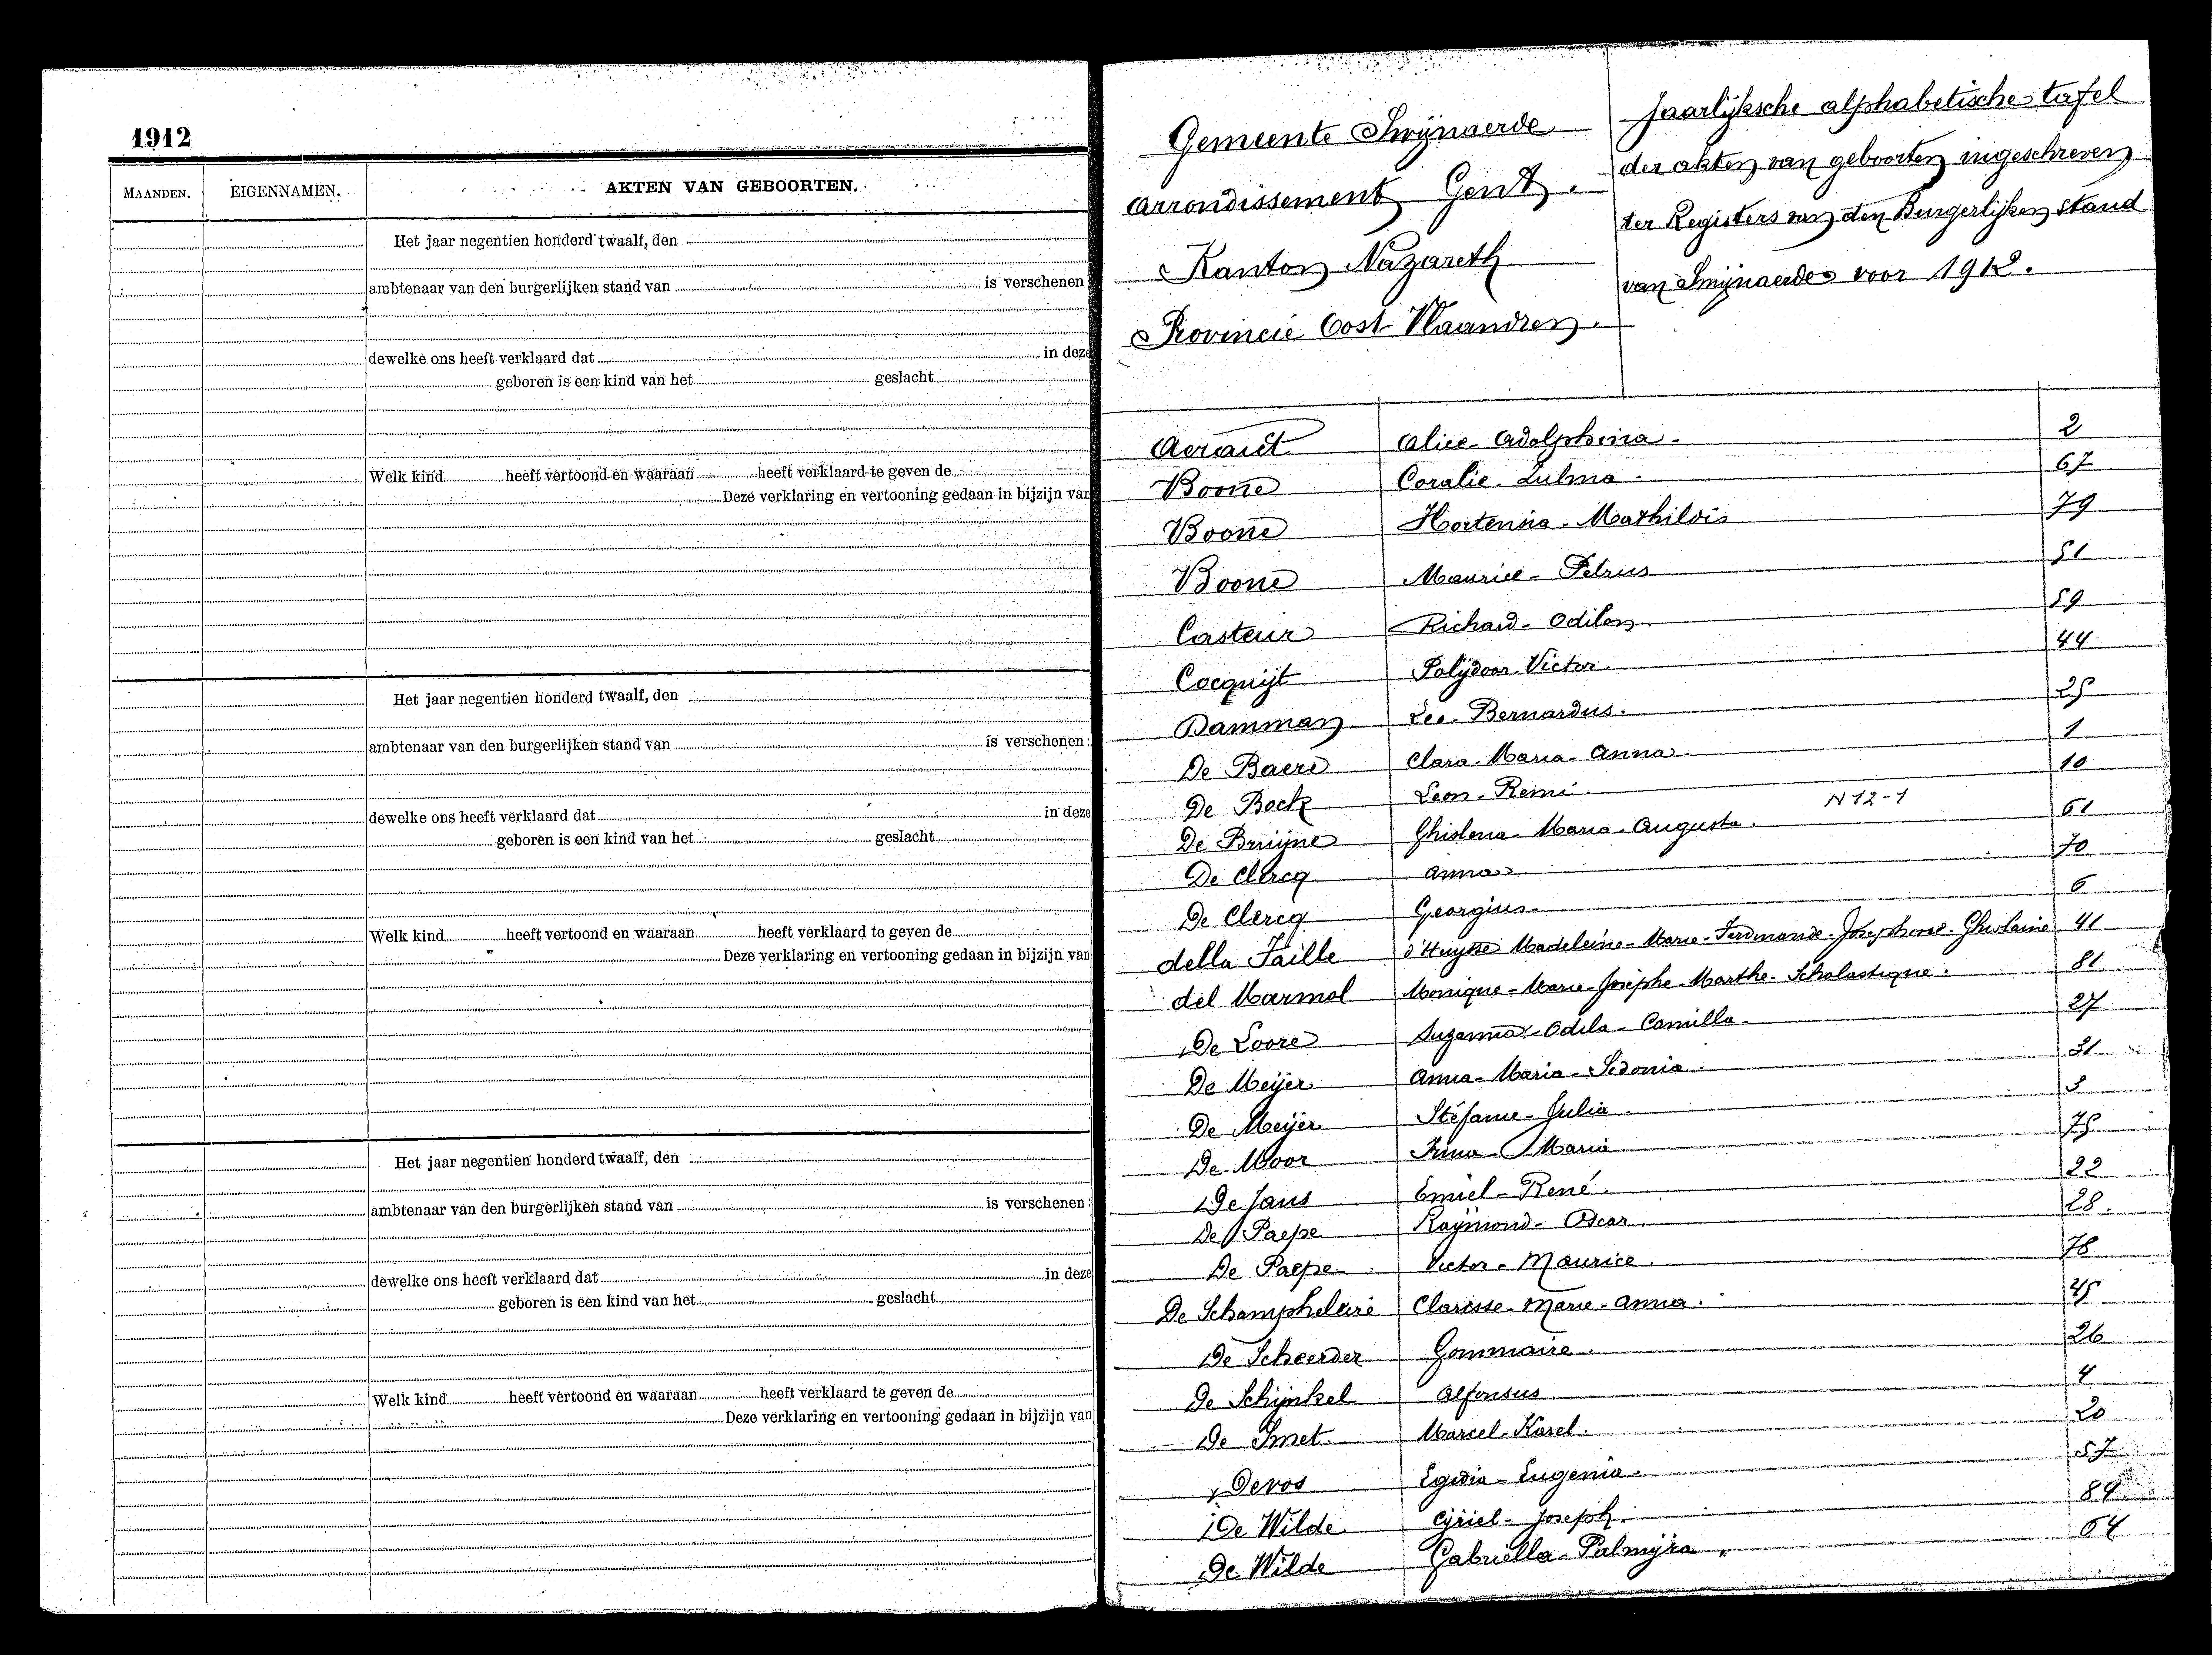 1912
MAANDEN. EIGENNAMEN. AKTEN VAN GEBOORTEN.
Het jaar negentien honderd twaalf, den
ambtenaar van den burgerlijken stand van is verschenen
dewelke ons heeft verklaard dat in deze
geboren is een kind van het geslacht
Welk kind heeft vertoond en waaraan heeft verklaard te geven de
Deze verklaring en vertooning gedaan in bijzijn van
Het jaar negentien honderd twaalf, den
ambtenaar van den burgerlijken stand van is verschenen:
dewelke ons heeft verklaard dat in deze
geboren is een kind van het geslacht
Welk kind heeft vertoond en waaraan heeft verklaard te geven de
Deze verklaring en vertooning gedaan in bijzijn van
Het jaar negentien honderd twaalf, den
ambtenaar van den burgerlijken stand van is verschenen:
dewelke ons heeft verklaard dat in deze
geboren is een kind van het geslacht
Welk kind heeft vertoond en waaraan heeft verklaard te geven de
Deze verklaring en vertooning gedaan in bijzijn van
Gemeente Swijnaerde
arrondissement Gent.
Kanton Nazareth
Provincie Oost-Vlaandren.
Jaarlijksche alphabetische tafel
der akten van geboorten ingeschreven
ter Registers van den Burgerlijken stand
van Swijnaerde voor 1912.
Alice-Adolphina- 2
Boone Coralie. Zulma- 67
Boone Hortensia-Mathildis 79
Boone Maurice-Petrus 51
Casteur Richard-Odilon 59
Cocquijt Polijdoor-Victor. 44
Damman Leo-Bernardus. 25
De Baere Clara-Maria-Anna 1
De Bock Leon-Remi. 10
N 12-1
De Bruijne Ghislena-Maria-Augusta. 61
De Clercq Anna 70
De Clercq Georgius- 6
della Faille d'Huysse Madeleine-Marie-Ferdinande-Josephine-Ghislaine 41
del Marmol Monique-Marie-Josèphe-Marthe-Scholastique. 81
De Loore Suzanna-Odila-Camilla- 27
De Meijer Anna-Maria-Sidonia. 31
De Meijer Stéfanie-Julia. 3
De Moor Irma-Maria 75
De Jans Emiel-René. 22
De Paepe Raymond-Oscar. 28.
De Paepe Victor-Maurice. 78
De Schamphelaire Clarisse-Marie-Anna. 45
De Scheerder Gommaire. 26
De Schijnkel Alfonsus 4
De Smet Marcel-Karel. 20
Devos Egidia-Eugenia. 57
De Wilde Cyriel-Joseph. 84
De Wilde Gabriella-Palmyra. 64